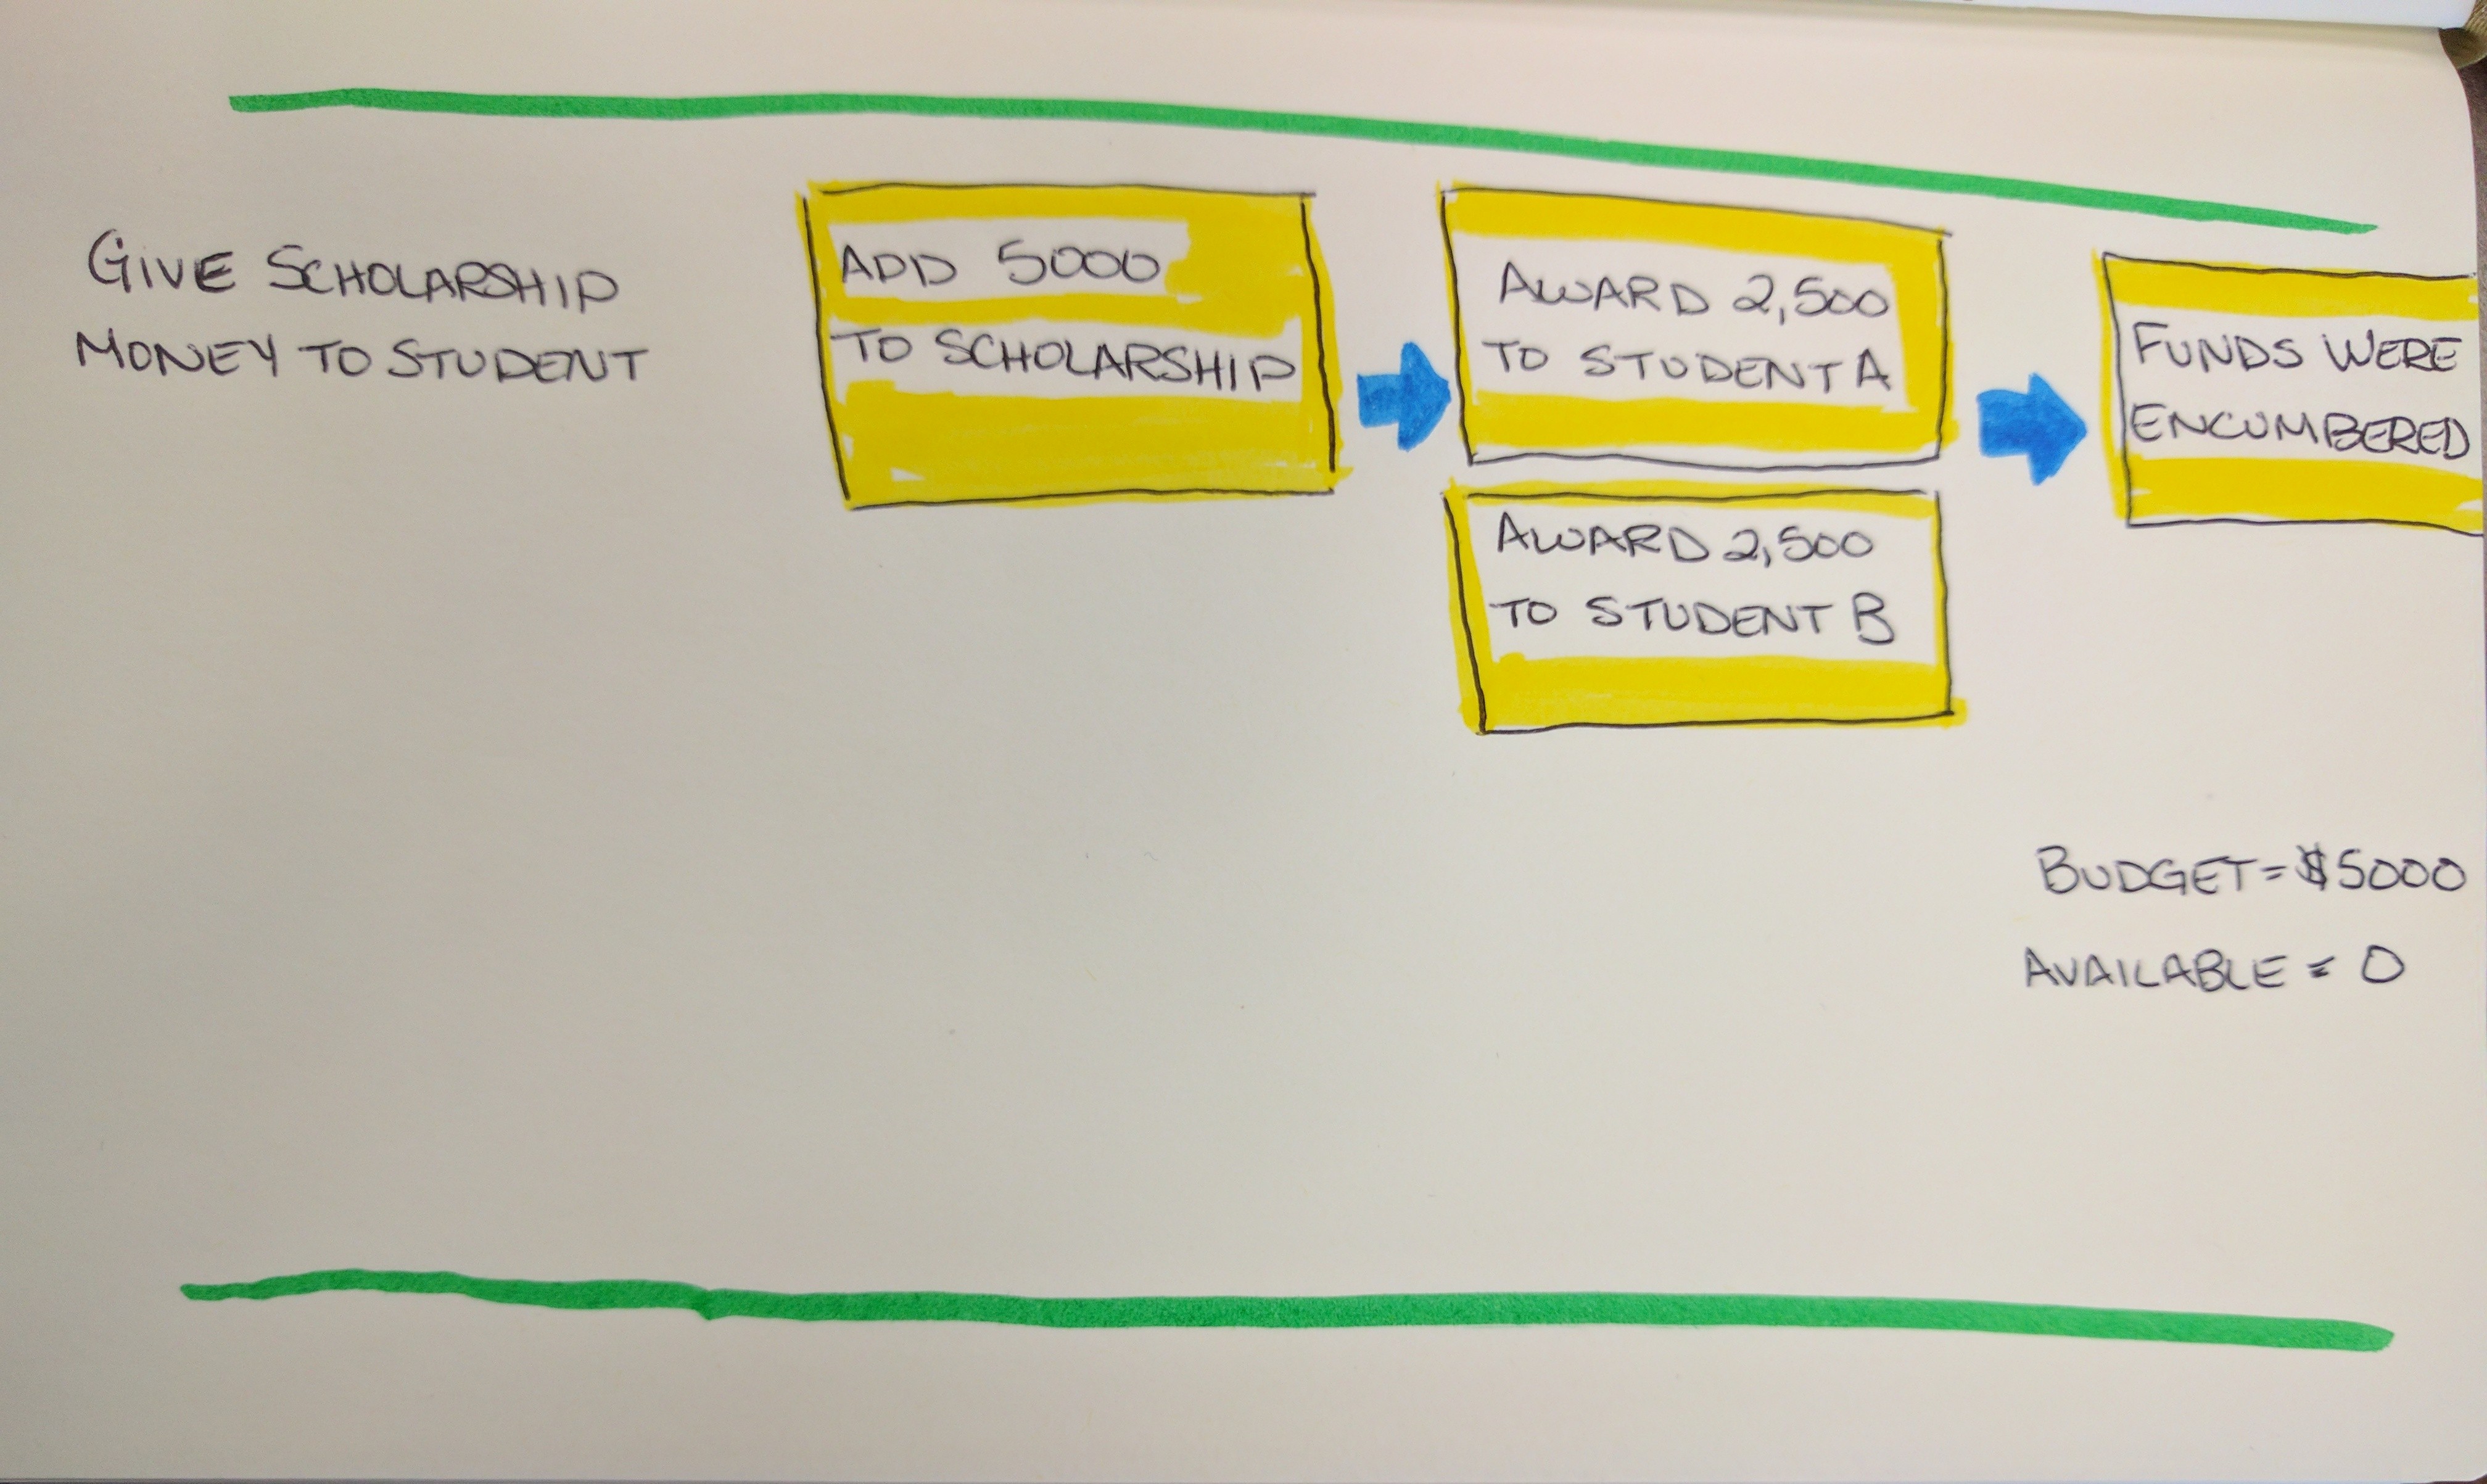 GIVE SCHOLARSHIP
MONEY TO STUDENT
ADD 5000
TO SCHOLARSHIP
AWARD 2,500
TO STUDENT A
AWARD 2,500
TO STUDENT B
FUNDS WERE
ENCUMBERED
BUDGET = $5000
AVAILABLE = 0